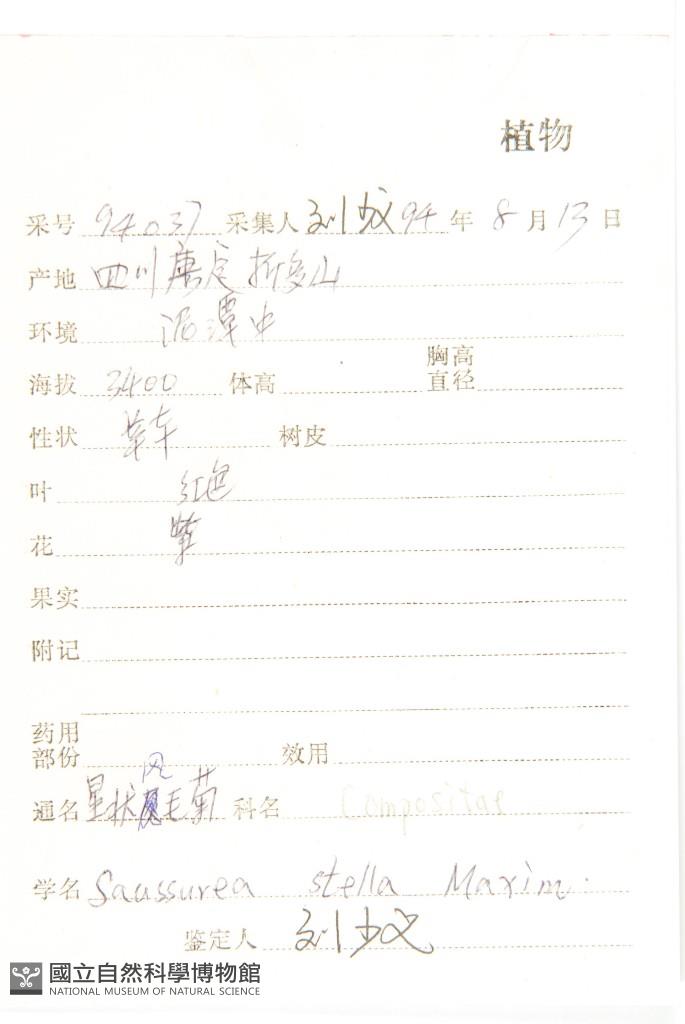 植物
采号 94037 采集人 刘少文 94 年 8 月 13 日
产地 四川康定折多山
环境 泥潭中
海拔 3400 体高 胸高直径
性状 草本
树皮
叶 红色
花 紫
果实
附记
药用部份 效用
风
通名 星状毛菊 科名 Compositae
学名 Saussurea stella Maxim.
鉴定人 刘少文
國立自然科學博物館
NATIONAL MUSEUM OF NATURAL SCIENCE